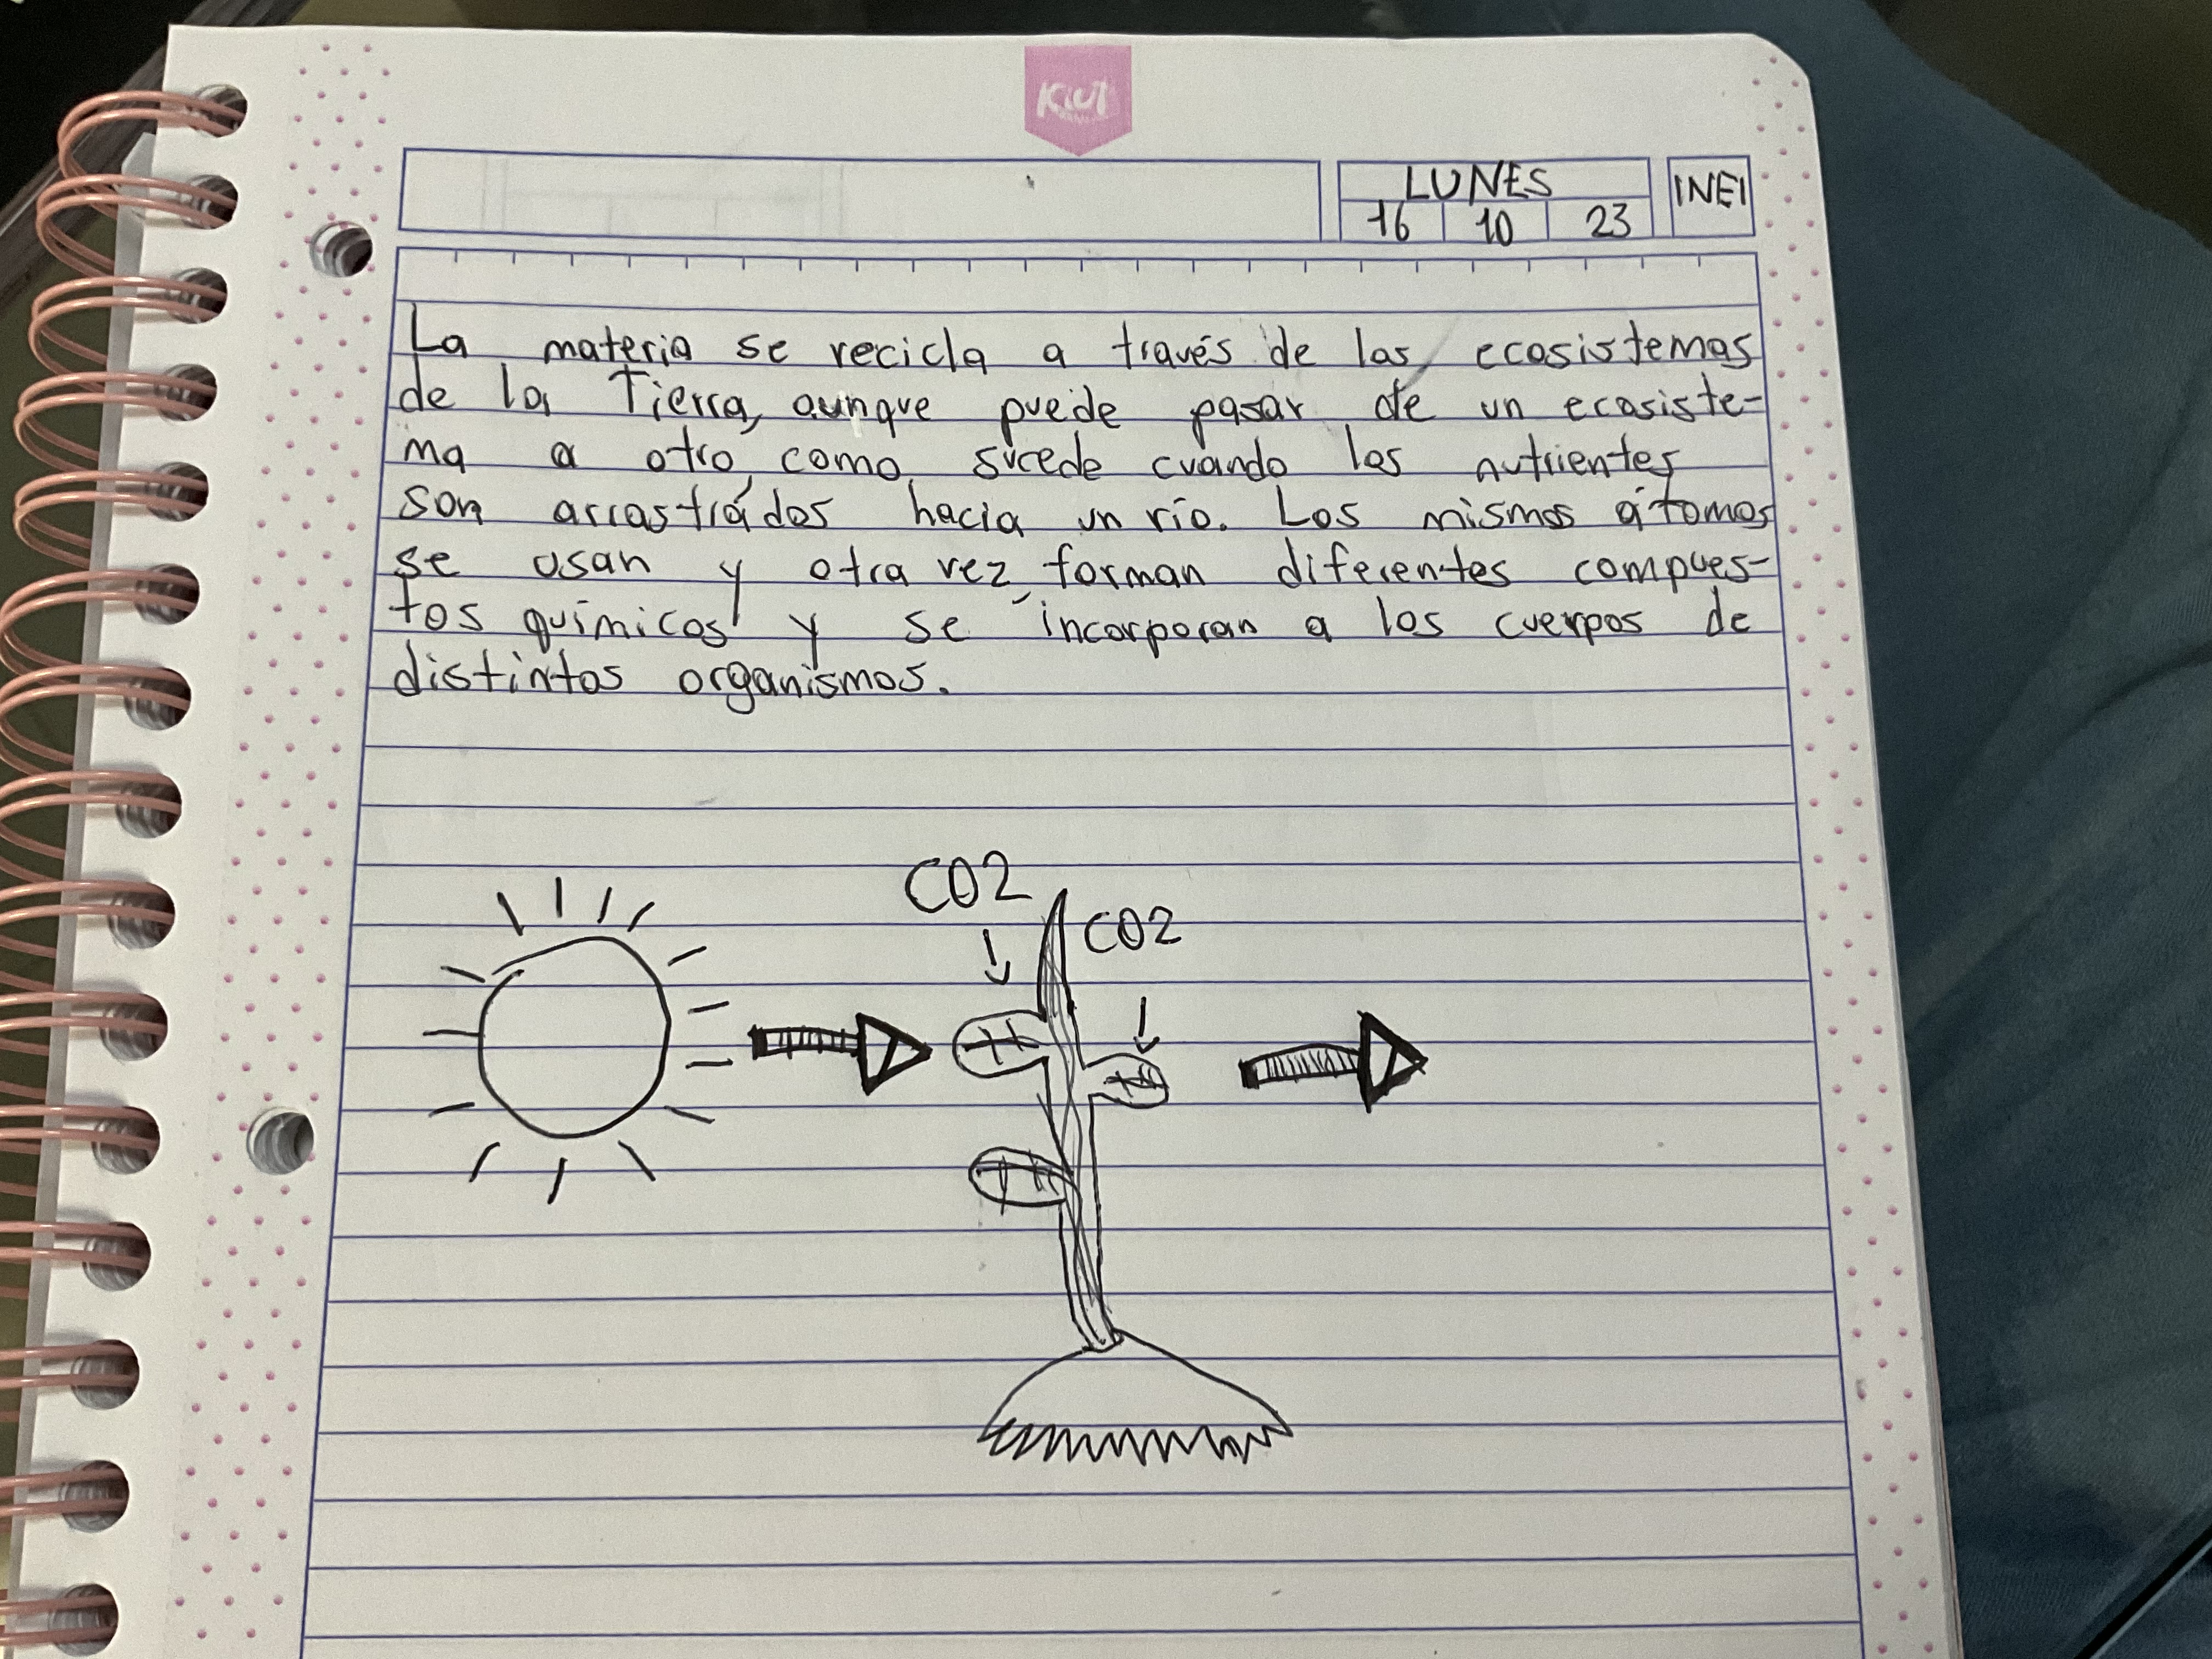 Kiut
LUNES
16 10 23
INEI
La materia se recicla a través de los ecosistemas
de la Tierra, aunque puede pasar de un ecosiste-
ma a otro, como sucede cuando los nutrientes
son arrastrádos hacia un río. Los mismos átomos
se usan y otra vez forman diferentes compues-
tos químicos y se incorporan a los cuerpos de
distintos organismos.
CO2
CO2